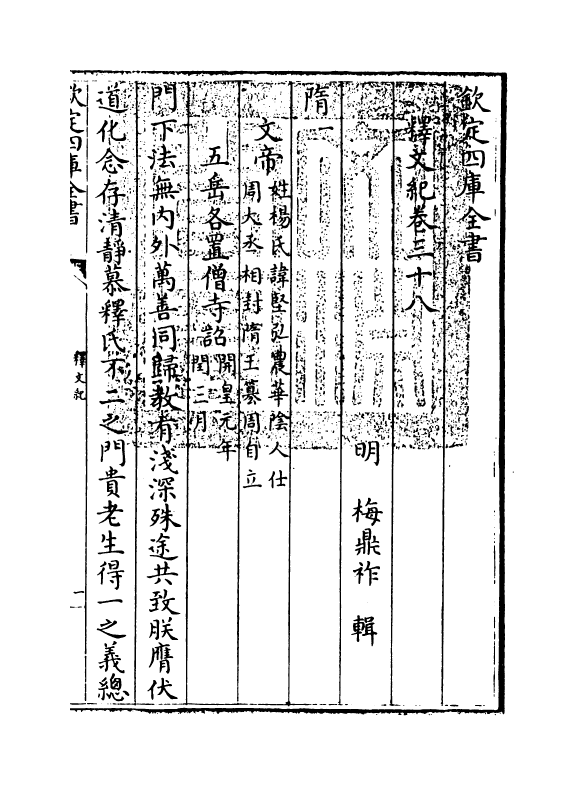 欽定四庫全書
釋文紀卷三十八
明 梅鼎祚 輯
隋
文帝
姓楊氏諱堅弘農華陰人仕
周大丞相封隋王篡周自立
五岳各置僧寺詔
開皇元年
閏三月
門下法無內外萬善同歸教有淺深殊途共致朕膺伏
道化念存清靜慕釋氏不二之門貴老生得一之義總
欽定四庫全書
釋文紀
一